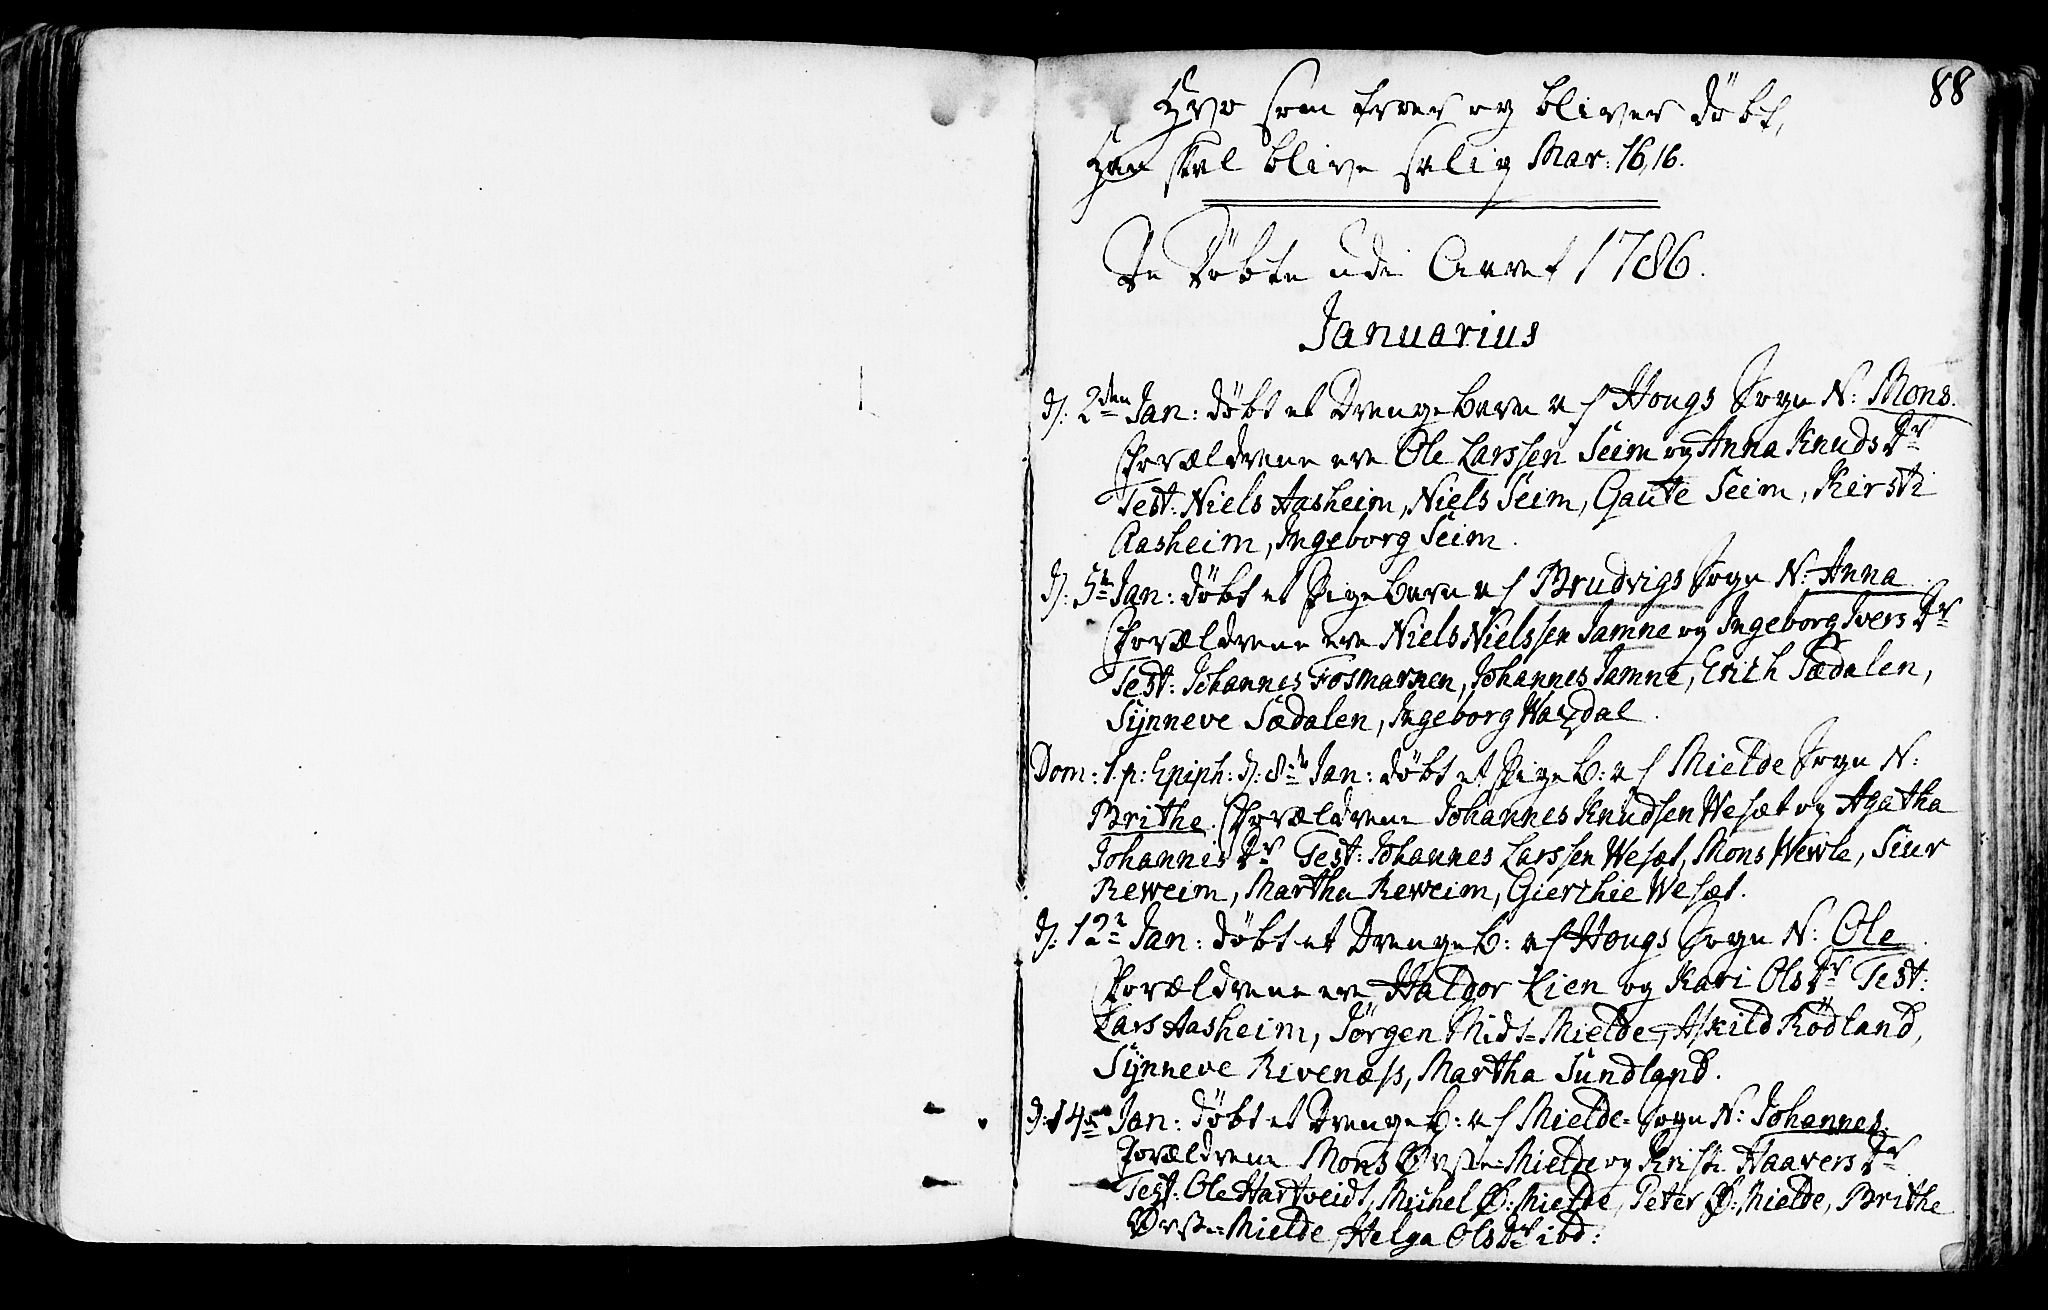 88
Hvo som troer og bliver döbt,
Han skal blive salig Mar: 16,16.
De Döbte udi Aaret 1786.
Januarius
D: 2den Jan: döbt et Drengebarn af Hougs Sogn N: Mons.
Forældrene ere Ole Larssen Seim og Anna Knuds Dr
Test: Niels Aasheim, Niels Seim, Gaute Seim, Kirsti
Aasheim, Ingeborg Seim.
D: 5te Jan: döbt et Pigebarn af Brudvigs Sogn N: Anna
Forældrene ere Niels Nielssen Jamne og Ingeborg Ivers Dr
Test: Johannes Fosmarken, Johannes Jamne, Erich Sædalen,
Sÿnneve Sædalen, Ingeborg
Dom: 1. p: Epiph: D: 8de Jan: döbt et Pigeb: af Mielde Sogn N:
Brithe. Forældrene Johannes Knudsen Wesæt og Agatha
Johannis Dr Test: Johannes Larssen Wesæt, Mons Wewle, Siur
Reweim, Martha Reweim, Gierthie Wesæt.
D: 12te Jan: döbt et Drengeb: af Hougs Sogn N: Ole
Forældrene ere Haldor Lien og Kari Ols Dr Test:
Lars Aasheim, Jörgen Mids=Mielde, Askild Rödland,
Sÿnneve Rivenæss, Martha Sundland.
D: 14de Jan: döbt et Drengeb: af Mielde=Sogn N: Johannes.
Forældrene Mons Øvste=Mielde og Kristi Haavers Dr
Test: Ole Hartveidt, Michel Ø: Mielde, Peter Ø: Mielde, Brithe
Øvste=Mielde, Helga Ols Dr ibd: